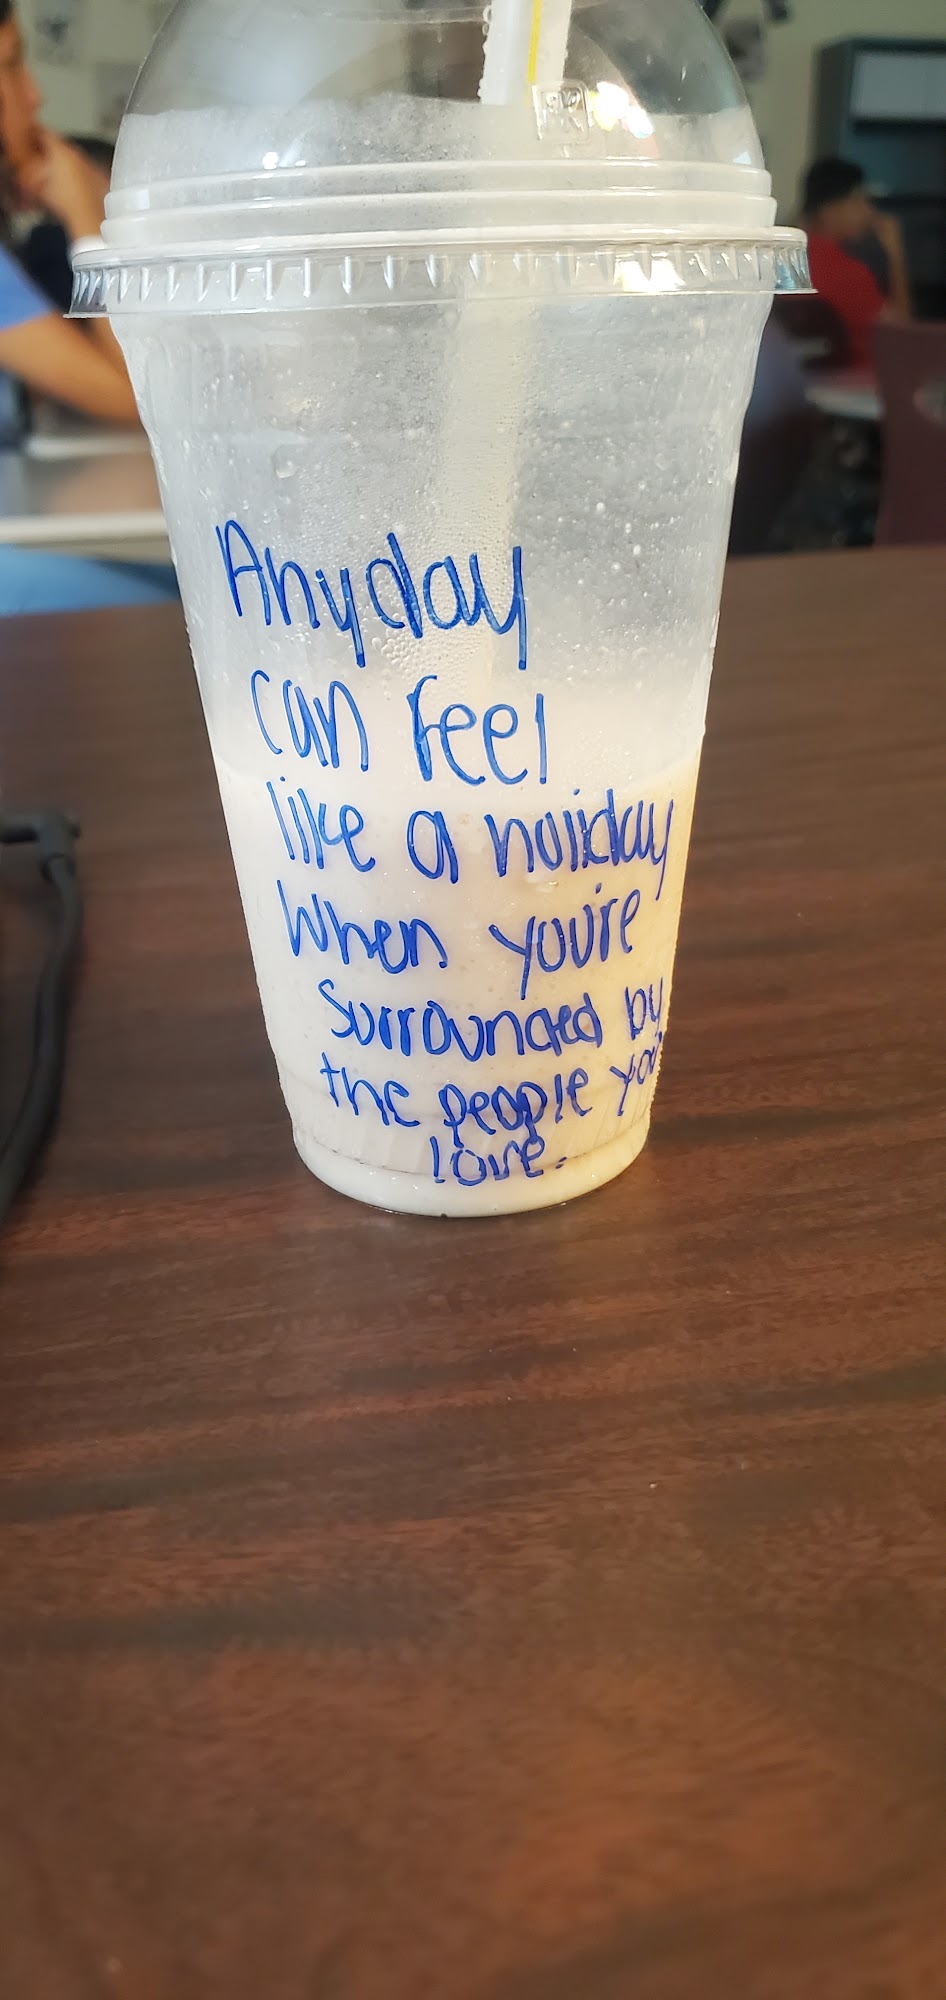 Anyday
can feel
like a holiday
When you're
surrounded by
the people you
love.